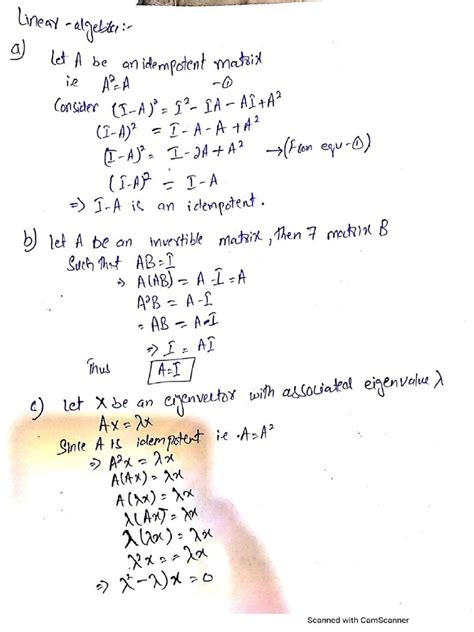 Linear-algebra:-
a) Let A be an idempotent matrix
ie A²=A -①
Consider (I-A)² = I² - IA - AI + A²
(I-A)² = I - A - A + A²
(I-A)² = I - 2A + A² → (From equ-①)
(I-A)² = I - A
⇒ I-A is an idempotent.
b) let A be an invertible matrix, then ∃ matrix B
Such that AB=I
⇒ A(AB) = A·I=A
A²B = A·I
= AB = A·I
⇒ I = AI
Thus A=I
c) Let X be an eigenvector with associated eigenvalue λ
Ax=λx
Since A is idempotent i.e ·A=A²
⇒ A²x = λx
A(Ax) = λx
A(λx) = λx
λ(Ax) = λx
λ(λx) = λx
λ²x = = λx
⇒ λ²-λ)x=0
Scanned with CamScanner